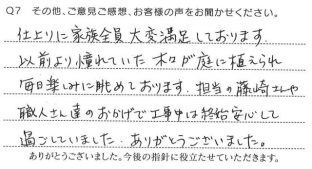 Q7 その他、ご意見ご感想、お客様の声をお聞かせください。
仕上りに家族全員大変満足しております。
以前より憧れていた木々が庭に植えられ
毎日楽しみに眺めております。担当の藤崎さんや
職人さん達のおかげで工事中は終始安心して
過ごしていました。ありがとうございました。
ありがとうございました。今後の指針に役立たせていただきます。